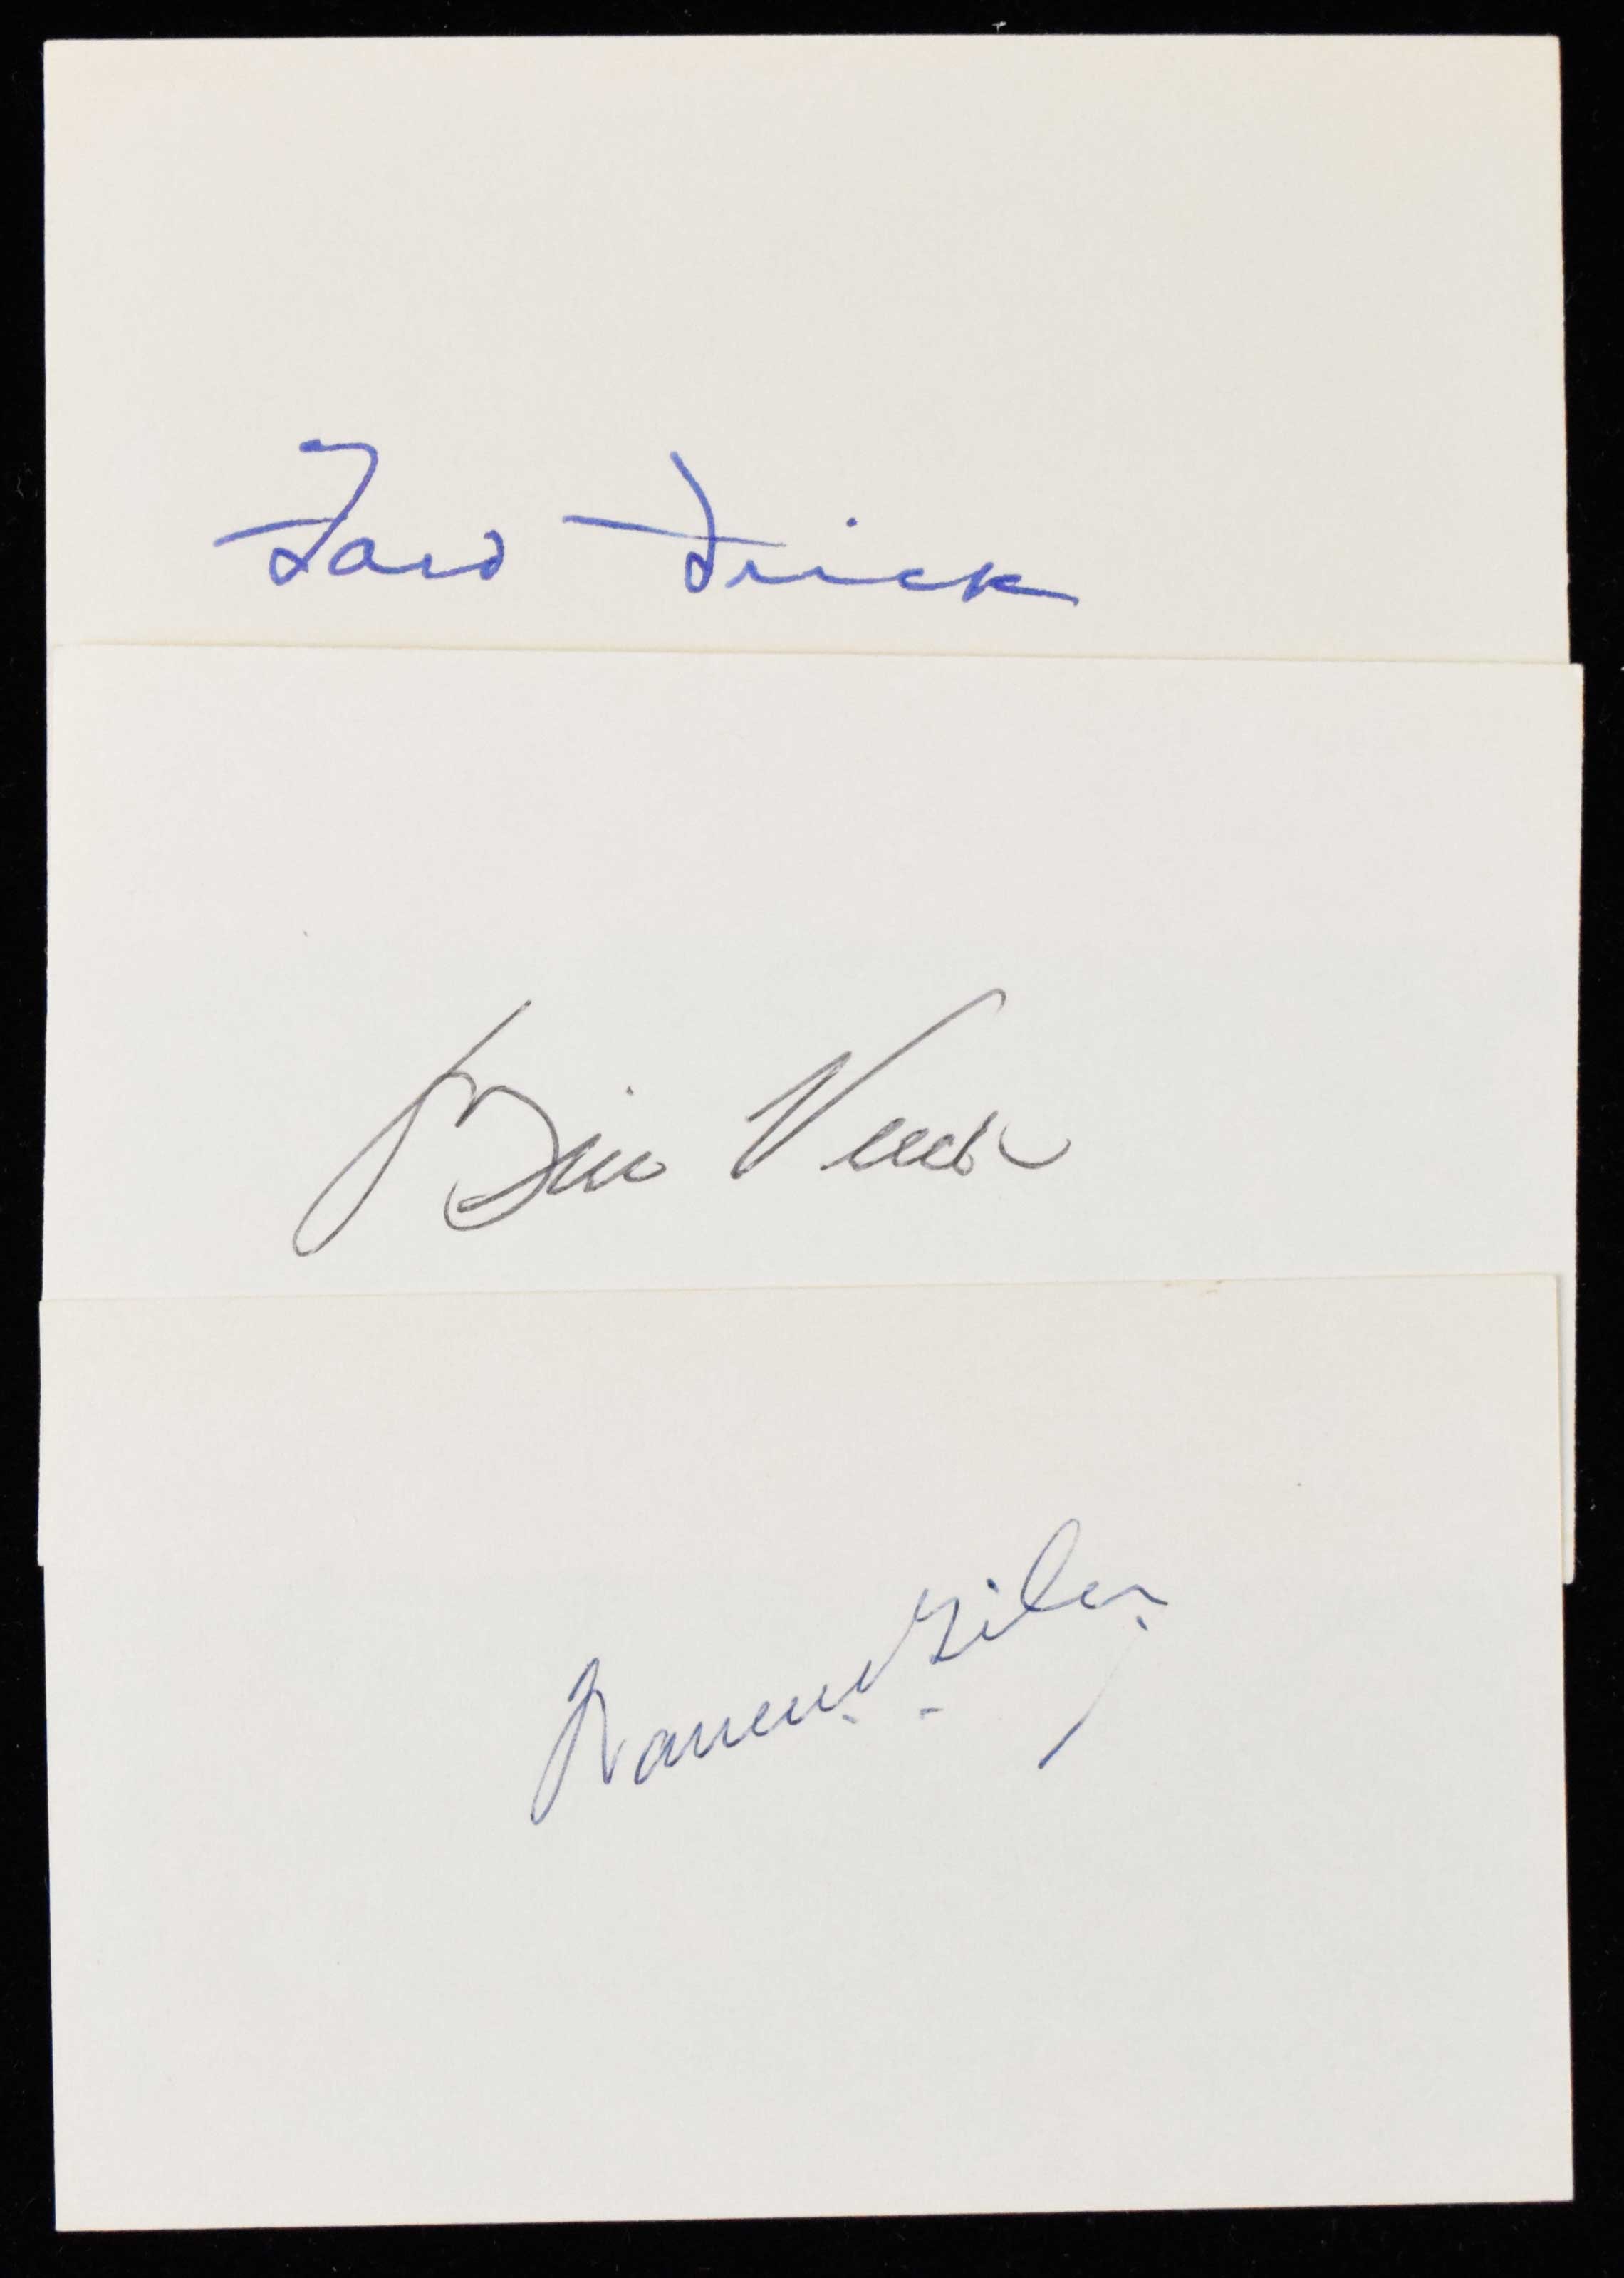 Ford Frick
Bill Veeck
Warren Giles